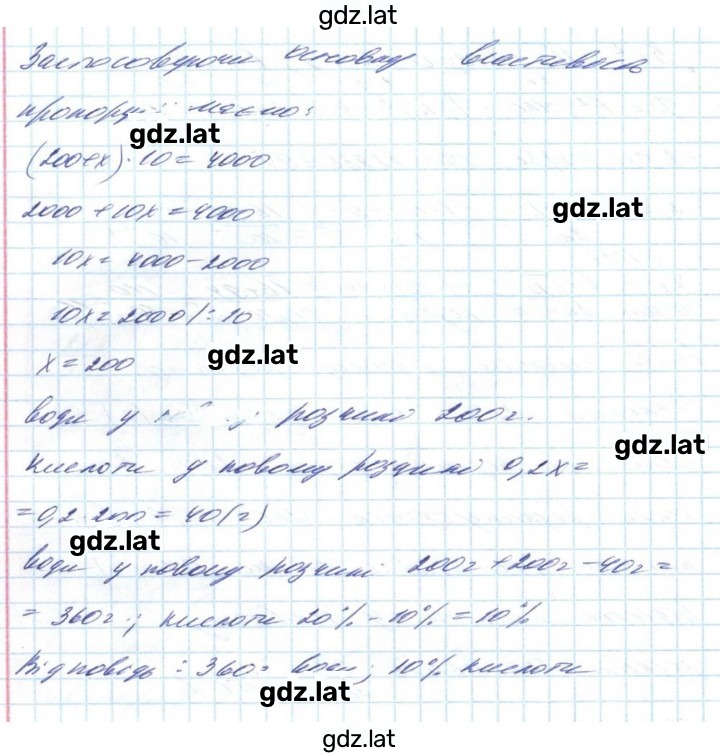 gdz.lat
Застосовуючи основну властивість
пропорції маємо:
gdz.lat
(200+x)·10=4000
2000+10x=4000
gdz.lat
10x=4000-2000
10x=2000/:10
x=200
gdz.lat
води у розчині 200г.
gdz.lat
кислоти у новому розчині 0,2x=
=0,2·200=40(г)
gdz.lat
води у новому розчині 200г+200г-40г=
=360г; кислоти 20%-10%=10%
Відповідь: 360г води; 10% кислоти
gdz.lat
gdz.lat